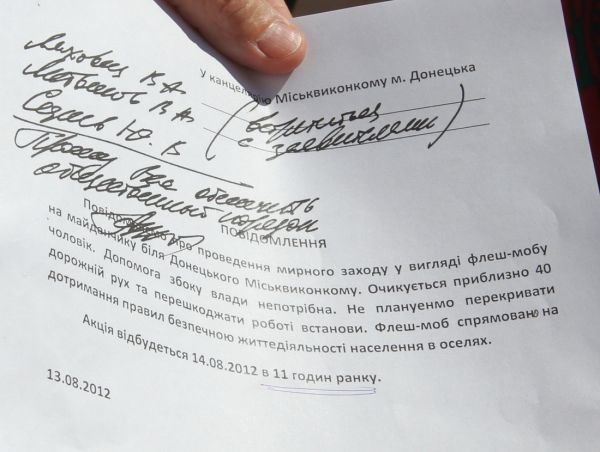 Ляховец В А
Матвеев В А
Седнев Ю. В
У канцелярію Міськвиконкому м. Донецька
(встретиться
с заявителями)
Прошу Вас обеспечить
общественный порядок
ПОВІДОМЛЕННЯ
Повідомляємо про проведення мирного заходу у вигляді флеш-мобу
на майданчику біля Донецького Міськвиконкому. Очикується приблизно 40
чоловік. Допомога збоку влади непотрібна. Не плануенмо перекривати
дорожній рух та перешкоджати роботі встанови. Флеш-моб спрямовано на
дотримання правил безпечною життедіяльності населення в оселях.
Акція відбудеться 14.08.2012 в 11 годин ранку.
13.08.2012